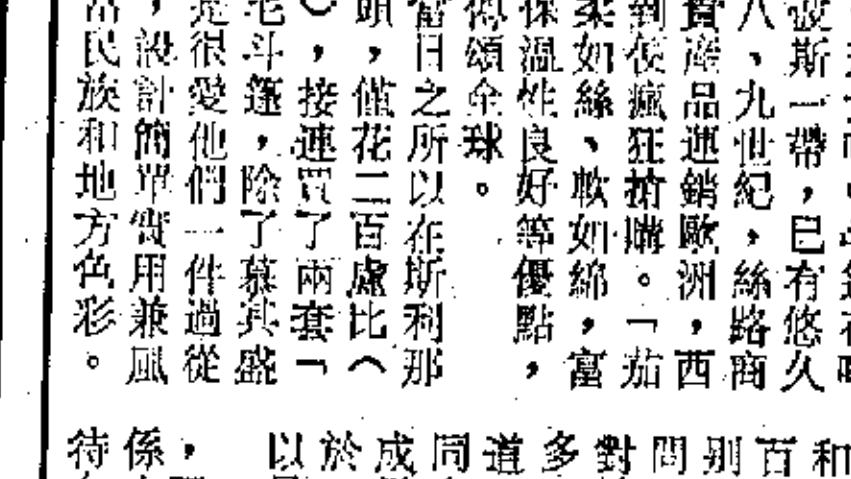 波斯一帶，已有悠久
八、九世紀，絲路商
賣產品運銷歐洲，西
到使瘋狂搶購。「茄
柔如絲、軟如綿，富
保溫性良好等優點，
傳頌全球。
當日之所以在斯利那
頭，僅花二百盧比（
），接連買了兩套「
毛斗蓬，除了慕其盛
是很愛他們一件過從
，設計簡單實用兼風
富民族和地方色彩。
和
百
別
問
對
多
道
同
成
於
以
係，
待